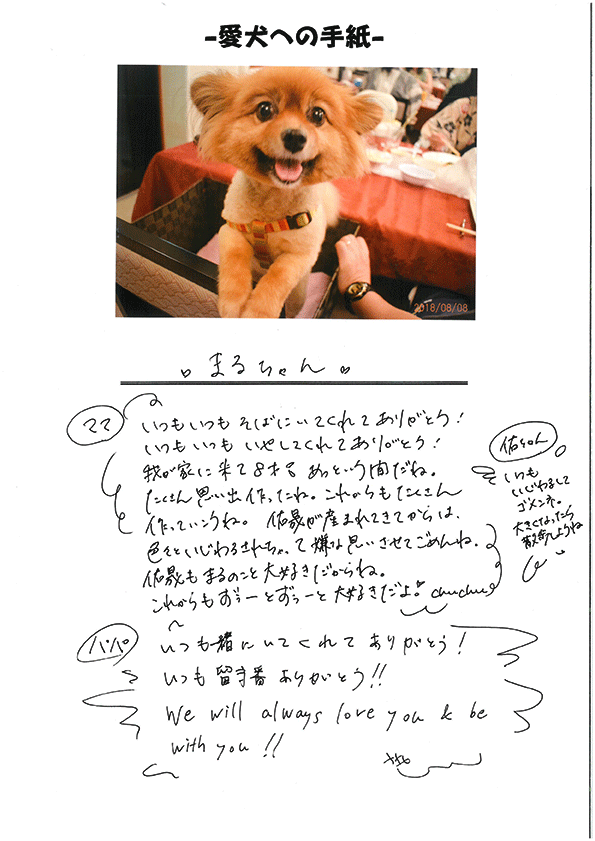 -愛犬への手紙-
2018/08/08
まるちゃん
ママ
いつもいつもそばにいてくれてありがとう!
いつもいつもいやしてくれてありがとう!
我が家に来て8才 あっという間だね。
たくさん思い出作ったね。これからもたくさん
作っていこうね。 佑晟が産まれてきてからは、
色々といじわるされちゃって嫌な思いさせてごめんね。
佑晟もまるのこと大好きだからね。
これからもずぅーとずぅーと大好きだよ! chuchu
佑ちゃん
いつも
いじわるして
ゴメンネ。
大きくなったら
散歩しようね
パパ
いつも一緒にいてくれてありがとう!
いつも留守番ありがとう!!
We will always love you & be
with you!!